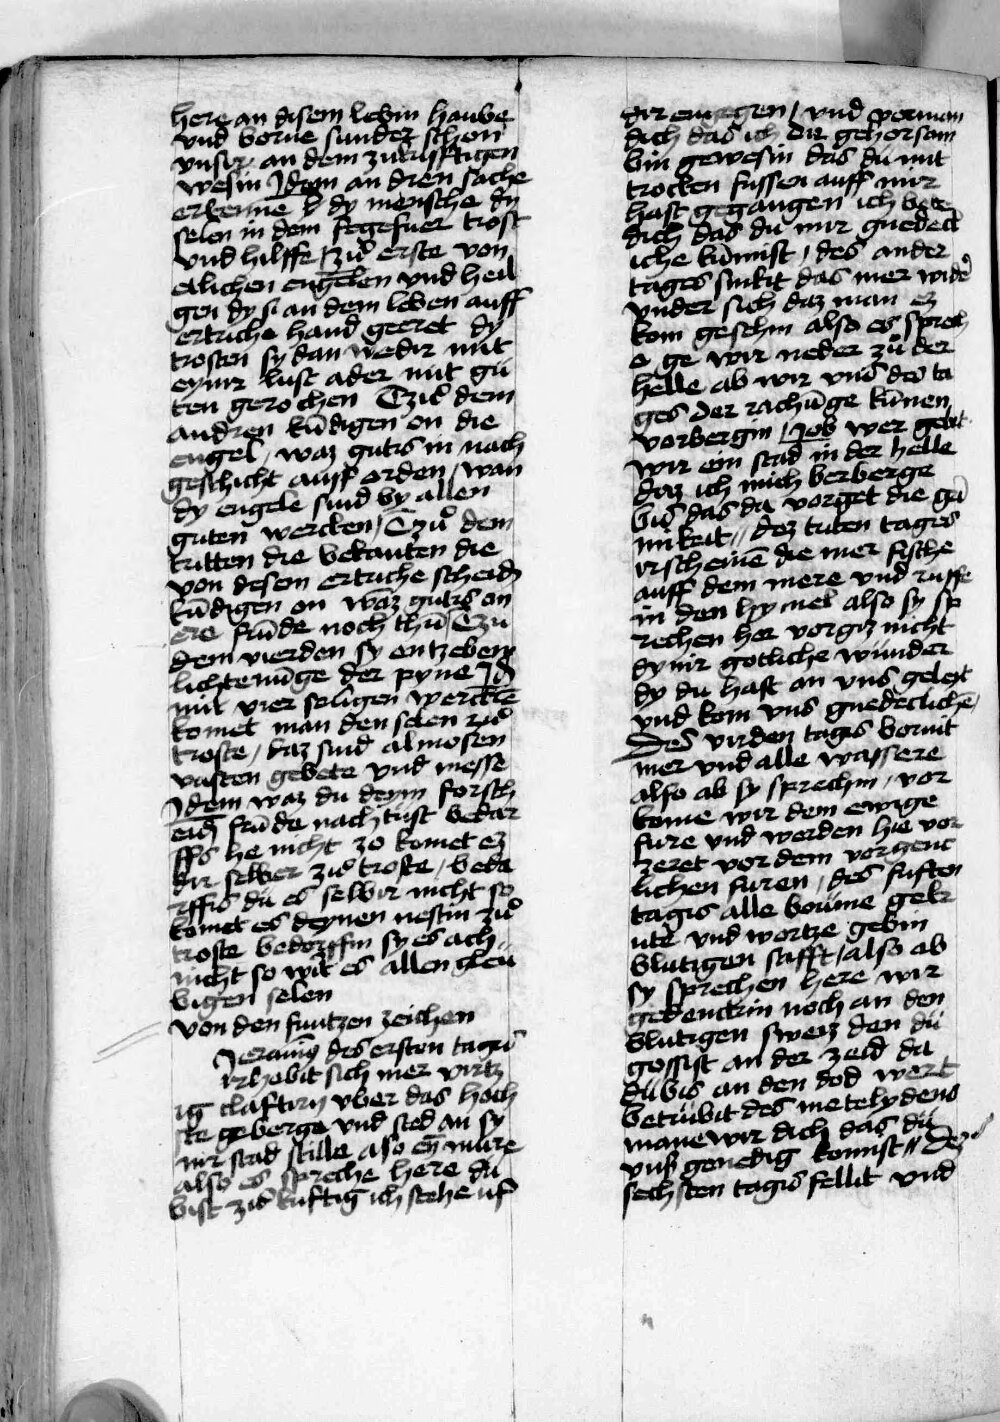 here an disem lebin hauwe
vnd borne sunder schon
vnsir an dem zukunfftigen
wesin Idem an dren sache
erkenne dy mensche dy
selen in dem fegefuer trost
vnd hilffe / zu erste von
etlichen engelen vnd heil
gen dy si an dem leben auff
ertriche hand geeret dy
trosten sy dan wedir mit
eynir lust ader mit gu
ten gerochen Czu dem
andren kūdigen on die
engel / waz gutis in nach
geschicht auff erden / wan
dy engele sind by allen
guten wercken / Czu dem
tritten die bekanten die
von desem ertriche scheidē
kūdigen on waz gutis on
ere frūde noch thū Czu
dem vierden sy entzeben
lichtenūge der pyne Id
mit vier seligen wercken
komet man den selen zu
troste / daz sind almosen
vasten gebete vnd messe
Idem waz du deym forsch
eiden frūde nach tust bedar
ffs he nicht zo komet ez
dir selber zu troste / beda
rffis du es selbir nicht so
komet es deynen nestin zu
troste bedorffin sy es ach
nicht so wirt es allen gleu
bigen selen
von den funtzen zeichen
Jeronimus des ersten tagis
irhebit sich mer virtz
ig claftirn vber das hoch
ste geberge vnd sted an sy
nir stad stille also eyn mure
also es spreche here du
bist zu kuftig ich stehe uf
dir engegen / vnd vorman
dich das ich dir gehorsam
bin gewesin das du mit
trocken fussen auff mir
hast gegangen ich bete
dich das du mir gnedec
iche kūmist / des ander
tages sinkit das mer wider
vnder sich daz man ez
kom geschin also es sprech
e ge wir neder zu der
helle ab wir vns des ta
ges der rachūge kūnen
vorbergin / Job wer gebit
wir ein stad in der helle
daz ich mich berberge
bis das da vorget die gri
mikeit // dez triten tages
irscheinē die mer fische
auff dem mere vnd ruffe
in den hymel also sy sp
rechen her vorgiz nicht
dynir gotliche wunder
dy du hast an vns geleit
vnd kom vns gnedeclichē /
Des virden tagis bornit
mer vnd alle wassere
also ab sy sprechin / vor
borne wir dem ewige
fure vnd werden hie vor
zeret vor dem vorgenc
lichen furen / des fuften
tagis alle boume gekr
ute vnd wortze gebin
blutigen safft / also ab
sy sprechen here wir
gedenckin noch an den
blutigen sweiz den du
gossist an der zeid da
du bis an den dod wert
betrubit des metelydens
mane wir dich das du
vns genedig komist // Des
sechsten tagis fellit vnd